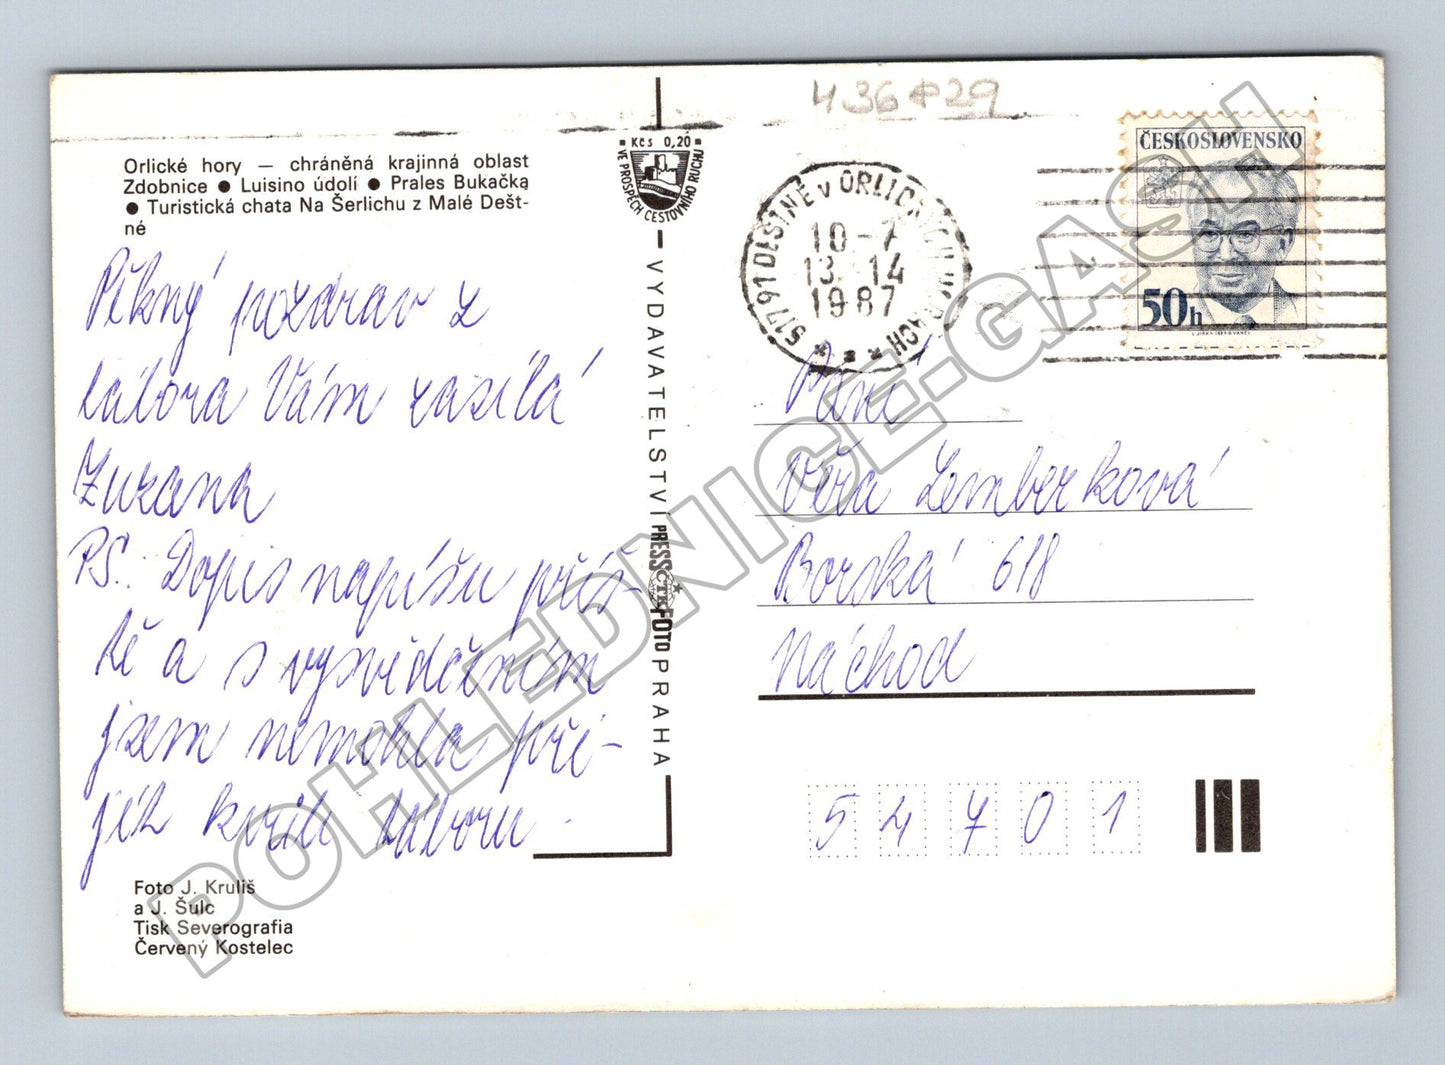 436 29
Orlické hory — chráněná krajinná oblast
Zdobnice ● Luisino údolí ● Prales Bukačka
● Turistická chata Na Šerlichu z Malé Dešt-
né
Pěkný pozdrav z
tábora Vám zasílá
Zuzana
PS.: Dopis napíšu příš-
tě a s vysvědčením
jsem nemohla při-
jít kvůli táboru.
Foto J. Kruliš
a J. Šulc
Tisk Severografia
Červený Kostelec
Kčs 0,20
VE PROSPĚCH CESTOVNÍHO RUCHU
VYDAVATELSTVÍ PRESSFOTO PRAHA
ČTK
517 91 DEŠTNÉ v ORLICKÝCH HORÁCH
10-7
13.-14
1987
ČESKOSLOVENSKO
50h
Paní
Věra Lemberková
Borská 618
Náchod
54701
POHLEDNICE-GASH